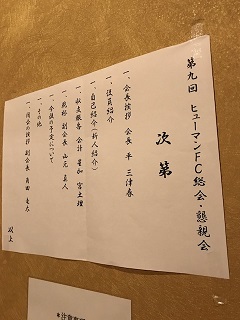 第九回 ヒューマンFC総会・懇親会
次第
一、会長挨拶 会長 平 三津春
一、役員紹介
一、自己紹介(新人紹介)
一、収支報告 会計 星加 富士理
一、乾杯 副会長 山元 真人
一、今後の予定について
一、その他
一、閉会の挨拶 副会長 角田
以上
*注意事項